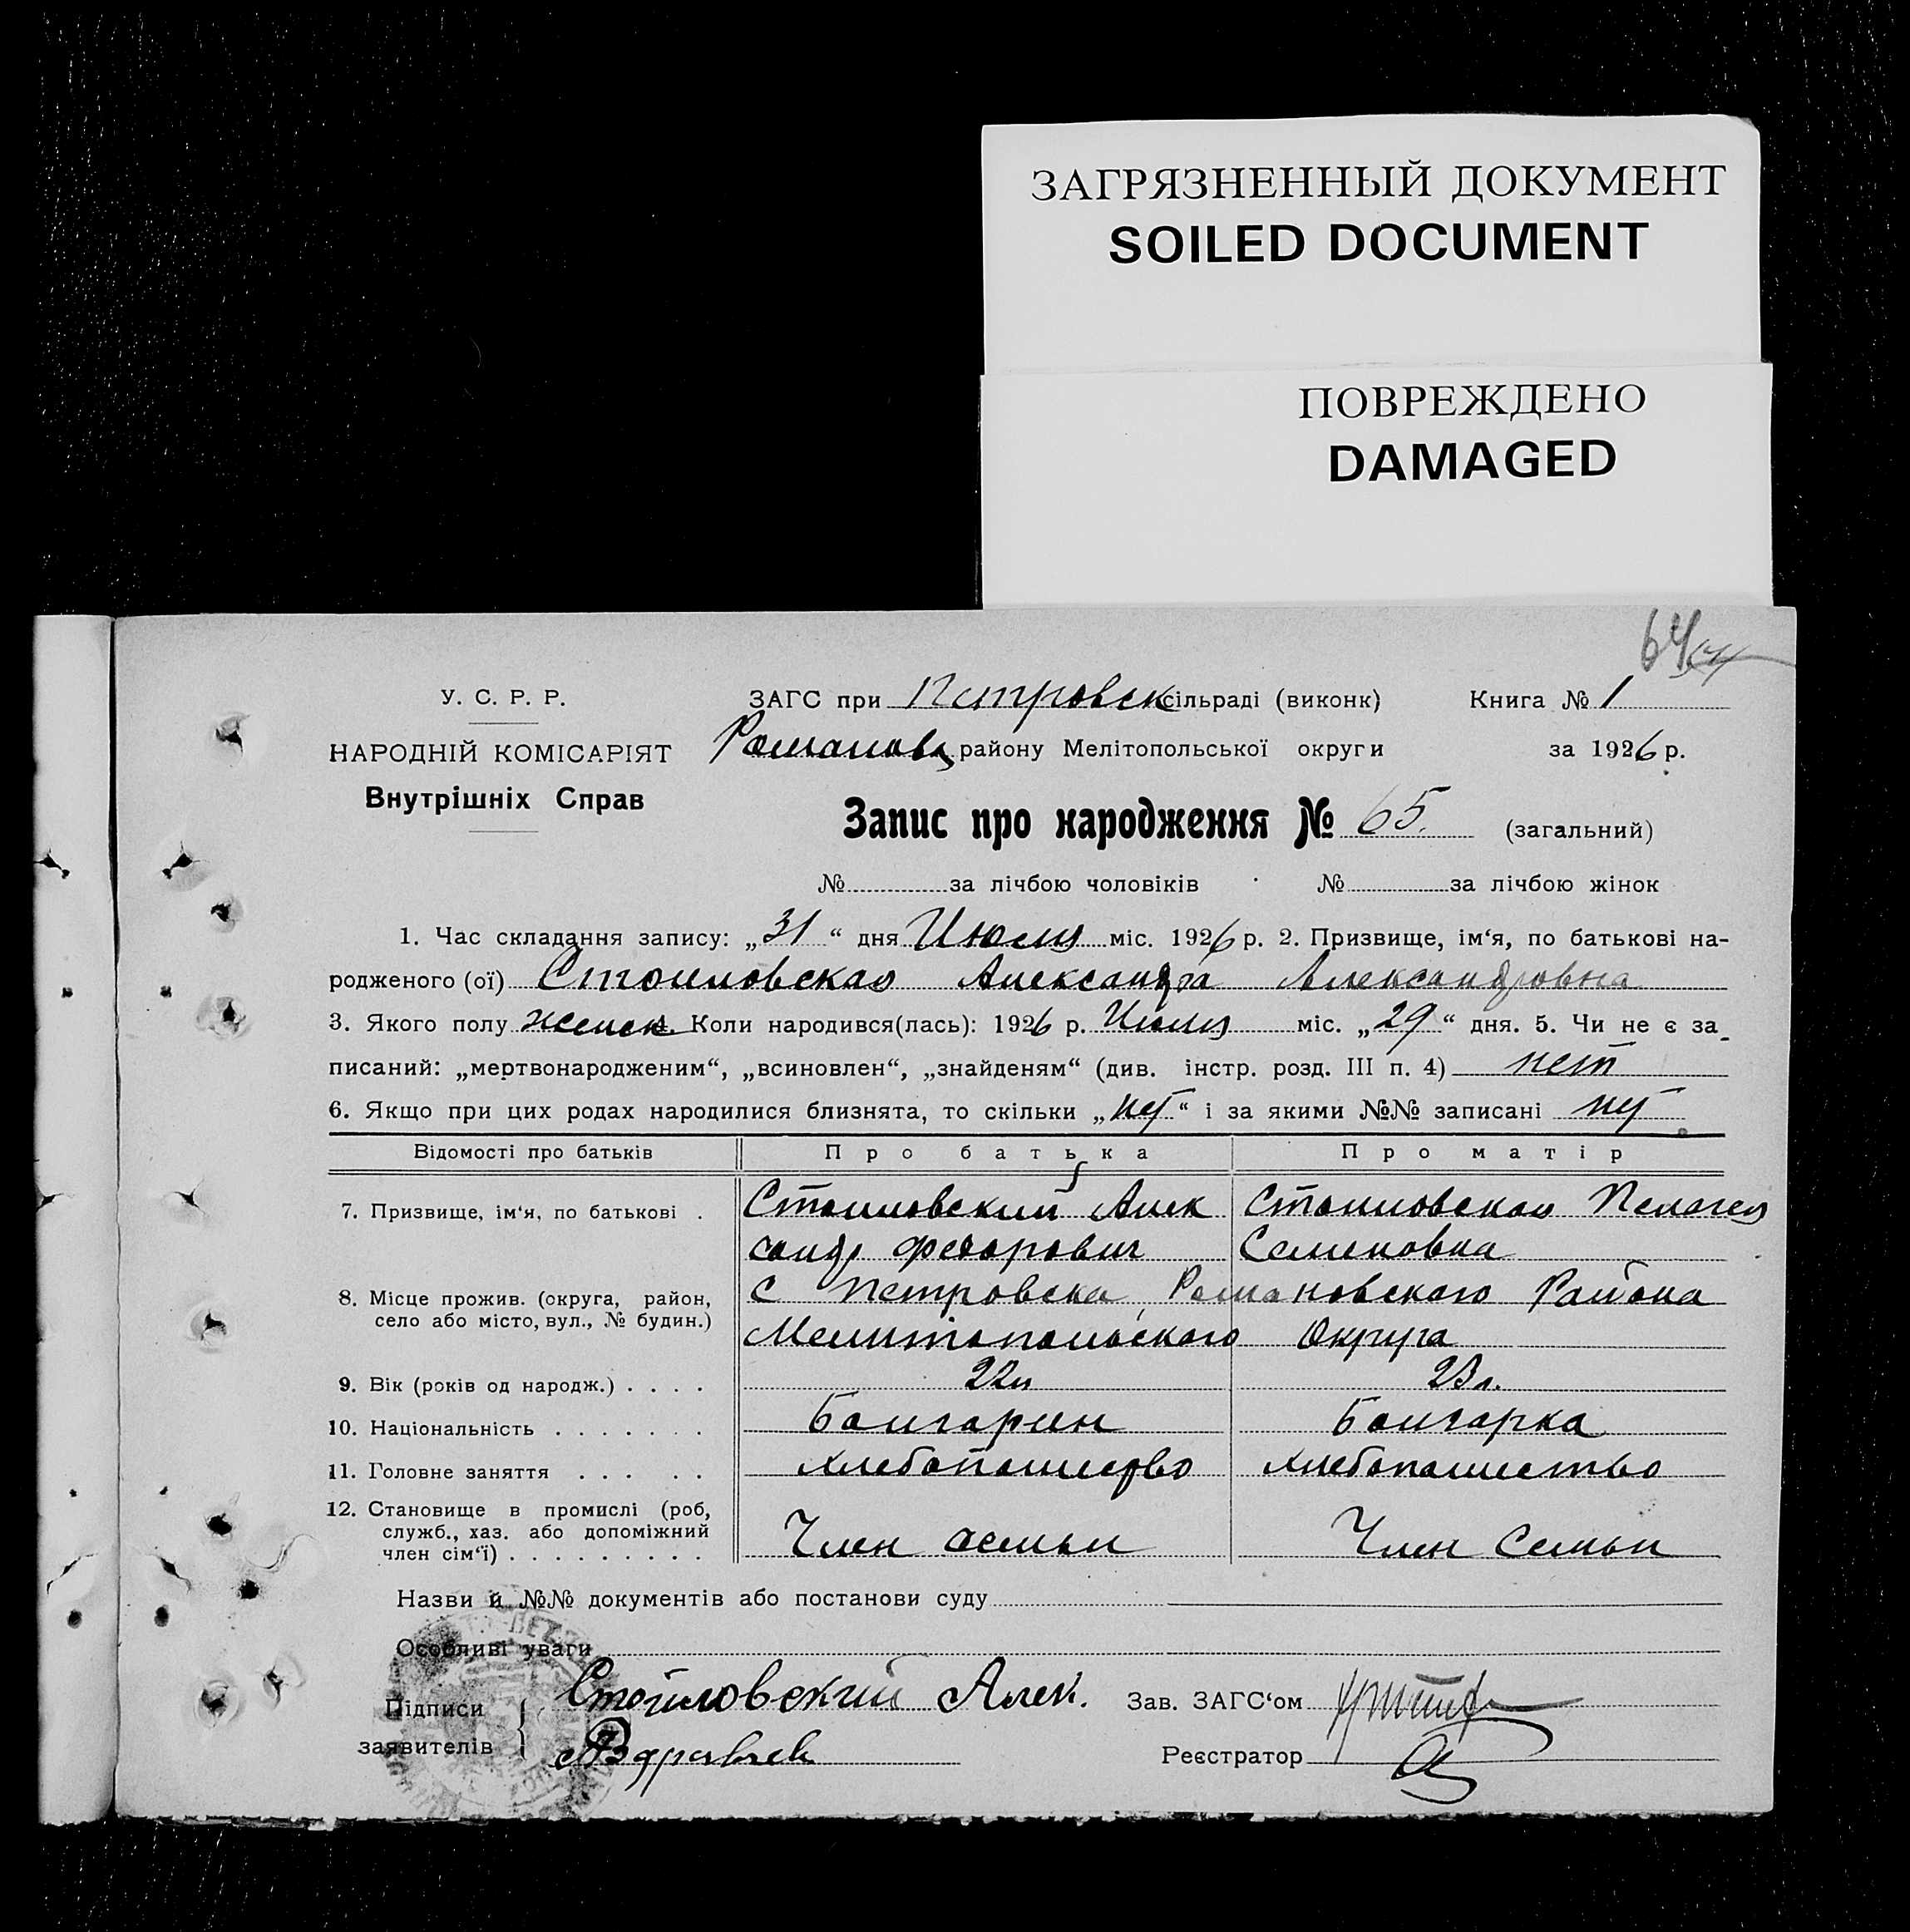 ЗАГРЯЗНЕННЫЙ ДОКУМЕНТ
SOILED DOCUMENT
ПОВРЕЖДЕНО
DAMAGED
64
У. С. Р. Р.
НАРОДНІЙ КОМІСАРІЯТ
Внутрішніх Справ
ЗАГС при Петровск сільраді (виконк) Книга № 1
Романовс району Мелітопольської округи за 1926 р.
Запис про народження № 65. (загальний)
№ за лічбою чоловіків № за лічбою жінок
1. Час складання запису: „31“ дня Июля міс. 1926 р. 2. Призвище, ім‘я, по батькові на-
родженого (ої) Стоиловская Александра Александровна
3. Якого полу женск. Коли народився(лась): 1926 р. Июля міс. „29“ дня. 5. Чи не є за-
писаний: „мертвонародженим“, „всиновлен“, „знайденям“ (див. інстр. розд. III п. 4) нет
6. Якщо при цих родах народилися близнята, то скільки „нет“ і за якими №№ записані нет
Відомості про батьків Про батька Про матір
7. Призвище, ім‘я, по батькові . Стоиловский Алек Стоиловская Пелагея
сандр Федорович Семеновна
8. Місце прожив. (округа, район, с Петровска, Романовского Района
село або місто, вул., № будин.) Мелитопольского Округа
9. Вік (років од народж.) . . . . 22л 23л.
10. Національність . . . . . . . Болгарин Болгарка
11. Головне заняття . . . . . Хлебопашество Хлебопашество
12. Становище в промислі (роб,
служб., хаз. або допоміжний
член сім‘ї) . . . . . . . . . Член семьи Член Семьи
Назви й №№ документів або постанови суду
Особливі уваги
Підписи заявителів Стоиловский Алек.
Зав. ЗАГС‘ом
Реєстратор